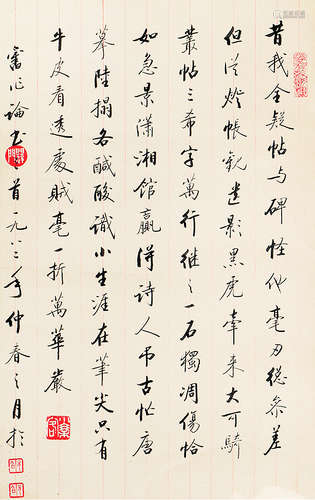 昔我全疑帖与碑怪他毫刃总参差
但从烬帐观遗影黑虎牵来大可骑
丛帖三希字万行继之一石独凋伤恰
如急景潇湘馆赢得诗人吊古忙唐
摹陆搨各咸酸识小生涯在笔尖只有
牛皮看透处贼毫一折万华严
旧作论书 首一九八二年仲春之月于